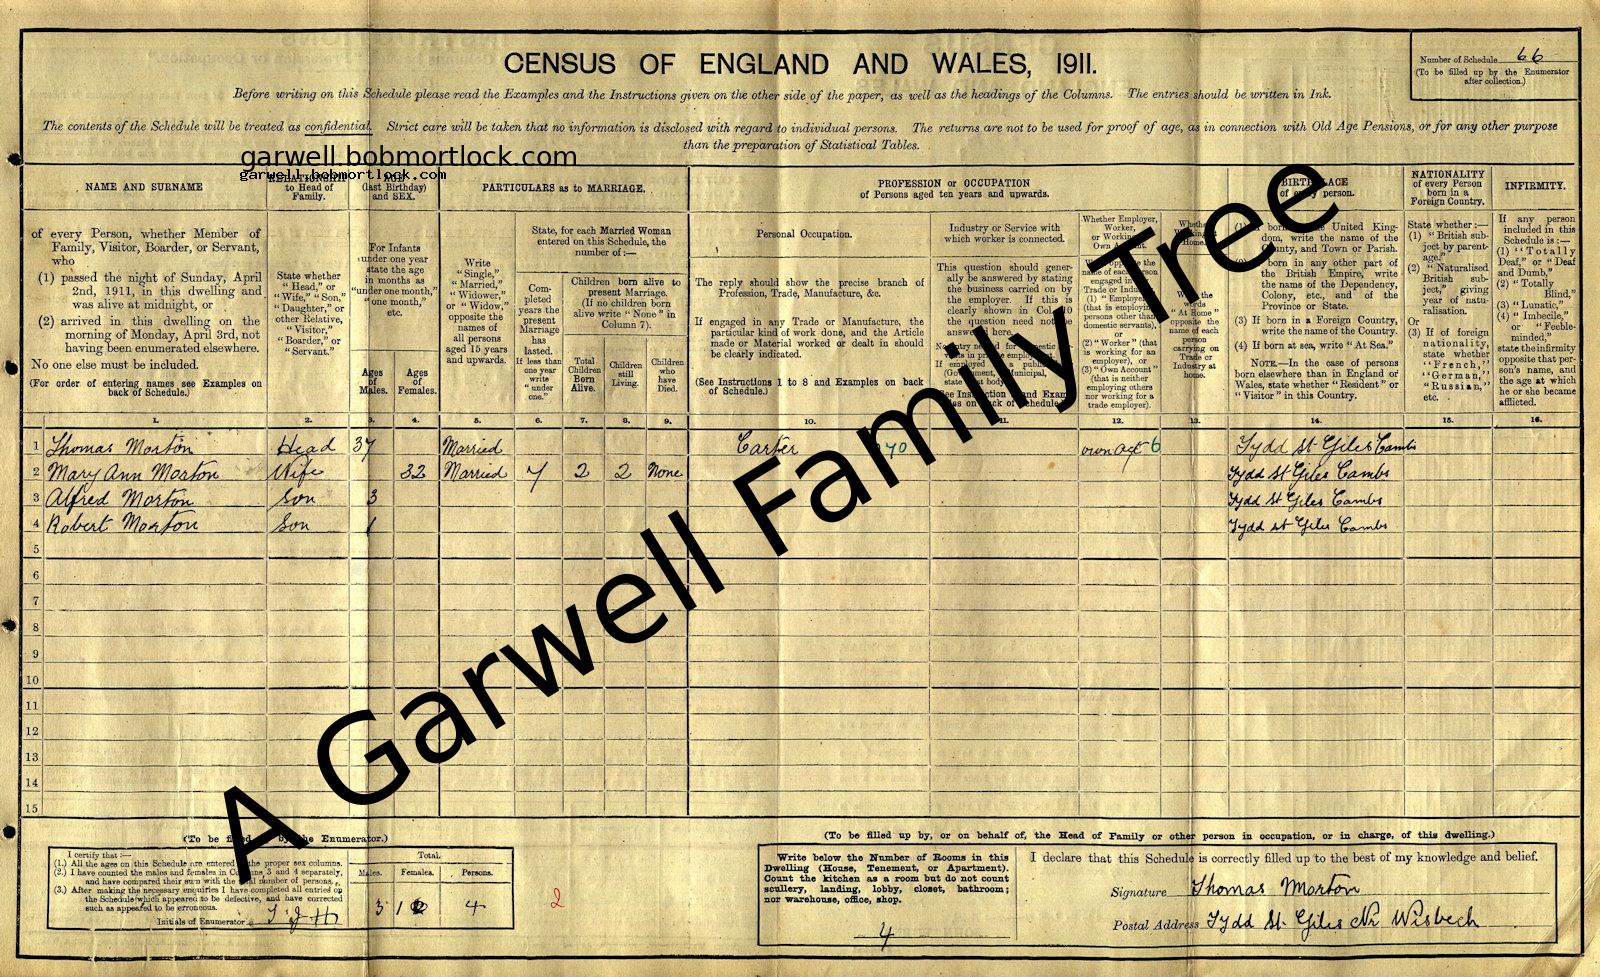 CENSUS OF ENGLAND AND WALES, 1911.
Number of Schedule 66
(To be filled up by the Enumerator
after collection.)
Before writing on this Schedule please read the Examples and the Instructions given on the other side of the paper, as well as the headings of the Columns. The entries should be written in Ink.
The contents of the Schedule will be treated as confidential. Strict care will be taken that no information is disclosed with regard to individual persons. The returns are not to be used for proof of age, as in connection with Old Age Pensions, or for any other purpose
than the preparation of Statistical Tables.
garwell.bobmortlock.com
garwell.bobmortlock.com
NAME AND SURNAME
of every Person, whether Member of
Family, Visitor, Boarder, or Servant,
who
(1) passed the night of Sunday, April
2nd, 1911, in this dwelling and
was alive at midnight, or
(2) arrived in this dwelling on the
morning of Monday, April 3rd, not
having been enumerated elsewhere.
No one else must be included.
(For order of entering names see Examples on
back of Schedule.)
RELATIONSHIP
to Head of
Family.
State whether
"Head," or
"Wife," "Son,"
"Daughter," or
other Relative,
"Visitor,"
"Boarder," or
"Servant."
AGE
(last Birthday)
and SEX.
For Infants
under one year
state the age
in months as
"under one month,"
"one month,"
etc.
Ages
of
Males.
Ages
of
Females.
PARTICULARS as to MARRIAGE.
Write
"Single,"
"Married,"
"Widower,"
or "Widow,"
opposite the
names of
all persons
aged 15 years
and upwards.
State, for each Married Woman
entered on this Schedule, the
number of :—
Com-
pleted
years the
present
Marriage
has
lasted.
If less than
one year
write
"under
one."
Children born alive to
present Marriage.
(If no children born
alive write "None" in
Column 7).
Total
Children
Born
Alive.
Children
still
Living.
Children
who
have
Died.
PROFESSION or OCCUPATION
of Persons aged ten years and upwards.
Personal Occupation.
The reply should show the precise branch of
Profession, Trade, Manufacture, &c.
If engaged in any Trade or Manufacture, the
particular kind of work done, and the Article
made or Material worked or dealt in should
be clearly indicated.
(See Instructions 1 to 8 and Examples on back
of Schedule.)
Industry or Service with
which worker is connected.
This question should gener-
ally be answered by stating
the business carried on by
the employer. If this is
clearly shown in Col. 10
the question need not be
answered here.
Whether Employer,
Worker,
or Working on
Own Account.
(1) "Employer"
(that is employing
persons other than
domestic servants),
or
(2) "Worker" (that
is working for an
employer), or
(3) "Own Account"
(that is neither
employing others
nor working for a
trade employer).
Write the
words
"At Home"
opposite the
name of each
person
carrying on
Trade or
Industry at
home.
BIRTHPLACE
of every person.
(1) If born in the United King-
dom, write the name of the
County, and Town or Parish.
(2) If born in any other part of
the British Empire, write
the name of the Dependency,
Colony, etc., and of the
Province or State.
(3) If born in a Foreign Country,
write the name of the Country.
(4) If born at sea, write "At Sea."
NOTE.—In the case of persons
born elsewhere than in England or
Wales, state whether "Resident" or
"Visitor" in this Country.
NATIONALITY
of every Person
born in a
Foreign Country.
State whether :—
(1) "British sub-
ject by parent-
age,"
(2) "Naturalised
British sub-
ject," giving
year of natu-
ralisation.
Or
(3) If of foreign
nationality,
state whether
"French,"
"German,"
"Russian,"
etc.
INFIRMITY.
If any person
included in this
Schedule is :—
(1) "Totally
Deaf," or "Deaf
and Dumb,"
(2) "Totally
Blind,"
(3) "Lunatic,"
(4) "Imbecile,"
or "Feeble-
minded,"
state the infirmity
opposite that per-
son's name, and
the age at which
he or she became
afflicted.
1. 2. 3. 4. 5. 6. 7. 8. 9. 10. 11. 12. 13. 14. 15. 16.
1 Thomas Morton Head 37 Married Carter own act 6 Tydd St Giles Cambs
2 Mary Ann Morton Wife 32 Married 7 2 2 None Tydd St Giles Cambs
3 Alfred Morton Son 3 Tydd St Giles Cambs
4 Robert Morton Son 1 Tydd St Giles Cambs
5
6
7
8
9
10
11
12
13
14
15
A Garwell Family Tree
(To be filled up by the Enumerator.)
I certify that :—
(1.) All the ages on this Schedule are entered in the proper sex columns.
(2.) I have counted the males and females in Columns 3 and 4 separately,
and have compared their sum with the total number of persons.
(3.) After making the necessary enquiries I have completed all entries on
the Schedule which appeared to be defective, and have corrected
such as appeared to be erroneous.
Initials of Enumerator
Total.
Males. Females. Persons.
3 1 4
2
(To be filled up by, or on behalf of, the Head of Family or other person in occupation, or in charge, of this dwelling.)
Write below the Number of Rooms in this
Dwelling (House, Tenement, or Apartment).
Count the kitchen as a room but do not count
scullery, landing, lobby, closet, bathroom;
nor warehouse, office, shop.
4
I declare that this Schedule is correctly filled up to the best of my knowledge and belief.
Signature Thomas Morton
Postal Address Tydd St. Giles Nr Wisbech